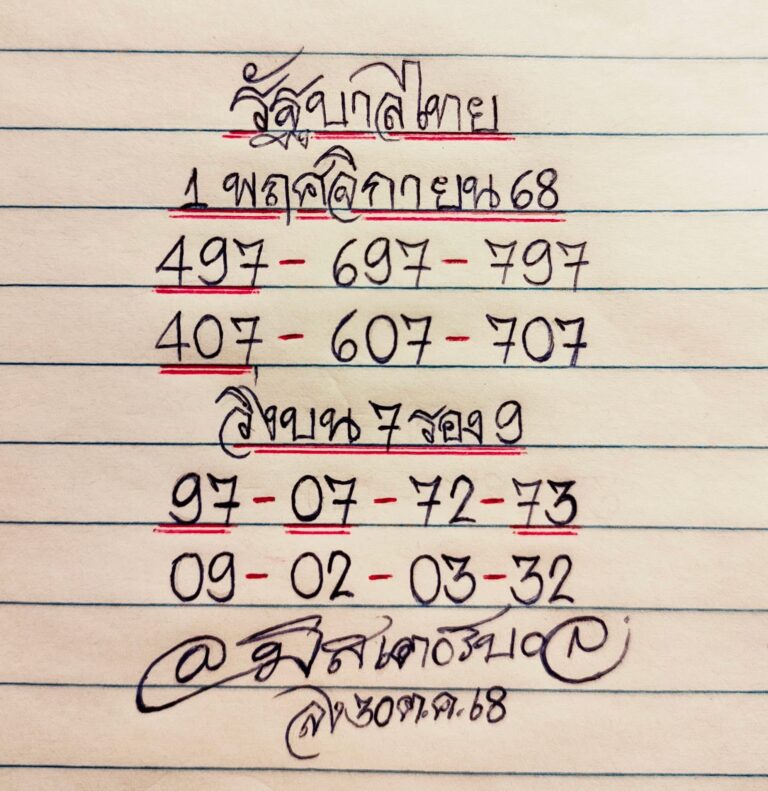 รัฐบาลไทย
1 พฤศจิกายน 68
497 - 697 - 797
407 - 607 - 707
วิ่งบน 7 รอง 9
97 - 07 - 72 - 73
09 - 02 - 03 - 32
@ มีสเตอร์บอล
ลง 30 ต.ค. 68